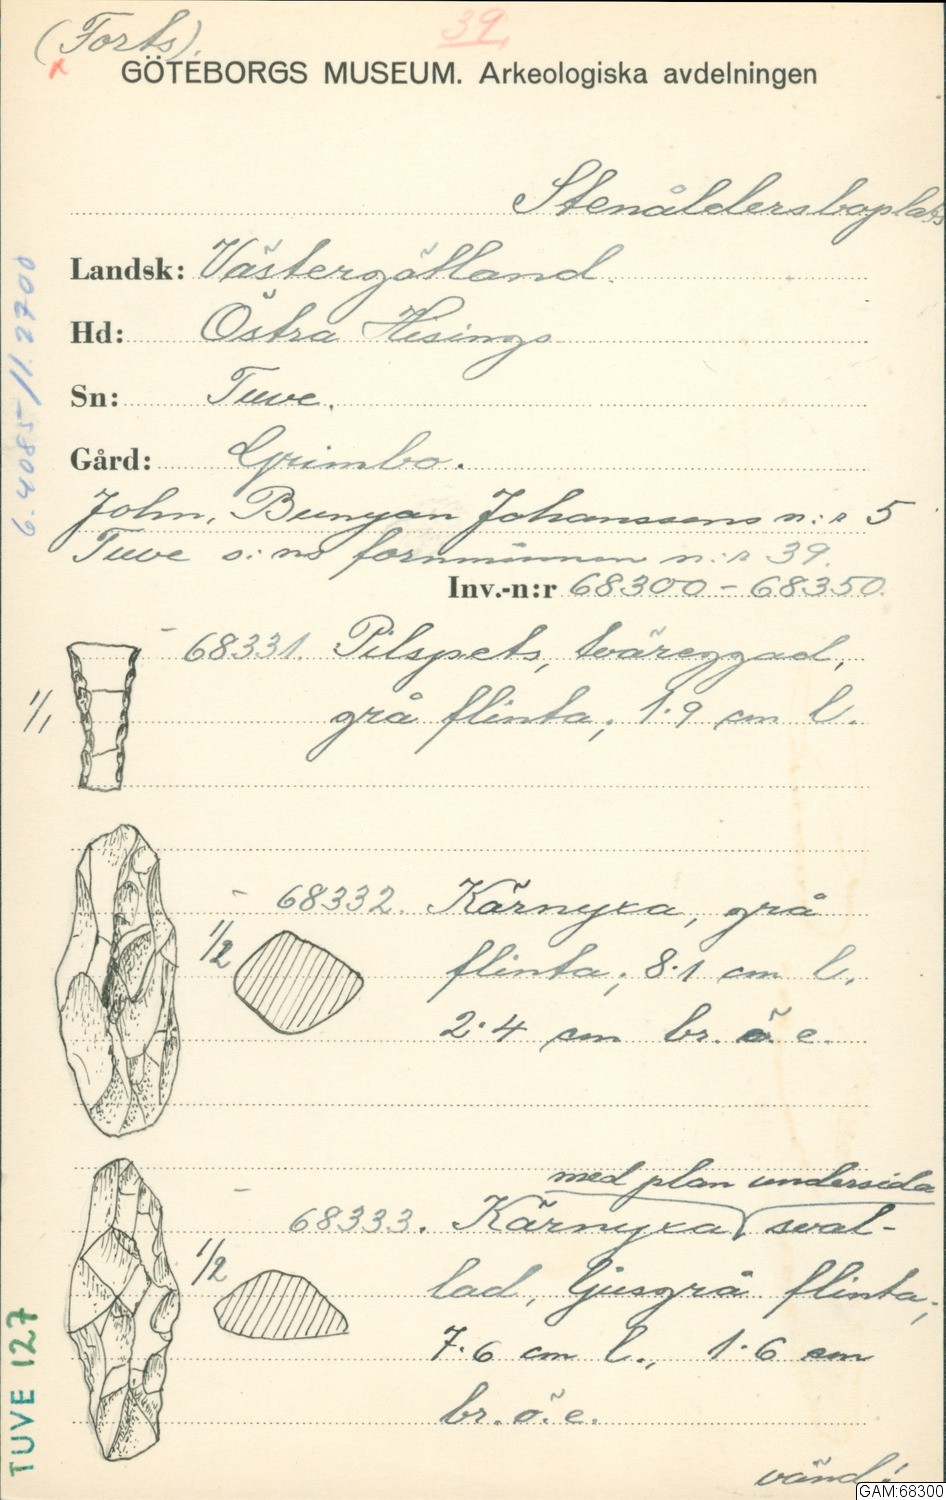 (Forts).
39.
GÖTEBORGS MUSEUM. Arkeologiska avdelningen
Stenåldersboplats
Landsk: Västergötland.
Hd: Östra Hisings
Sn: Tuve.
Gård: Grimbo.
John. Bunyan Johanssons n:r 5
Tuve s:ns fornminnen n:r 39.
Inv.-n:r 68300-68350.
1/1
- 68331. Pilspets, tväreggad,
grå flinta; 1.9 cm l.
1/2
- 68332. Kärnyxa, grå
flinta; 8.1 cm l.
2.4 cm br. ö. e.
med plan undersida
1/2
- 68333. Kärnyxa, sval-
lad, ljusgrå flinta;
7.6 cm l., 1.6 cm
br. ö. e.
vänd!
6.4085/11.2700
TUVE 127
GAM:68300